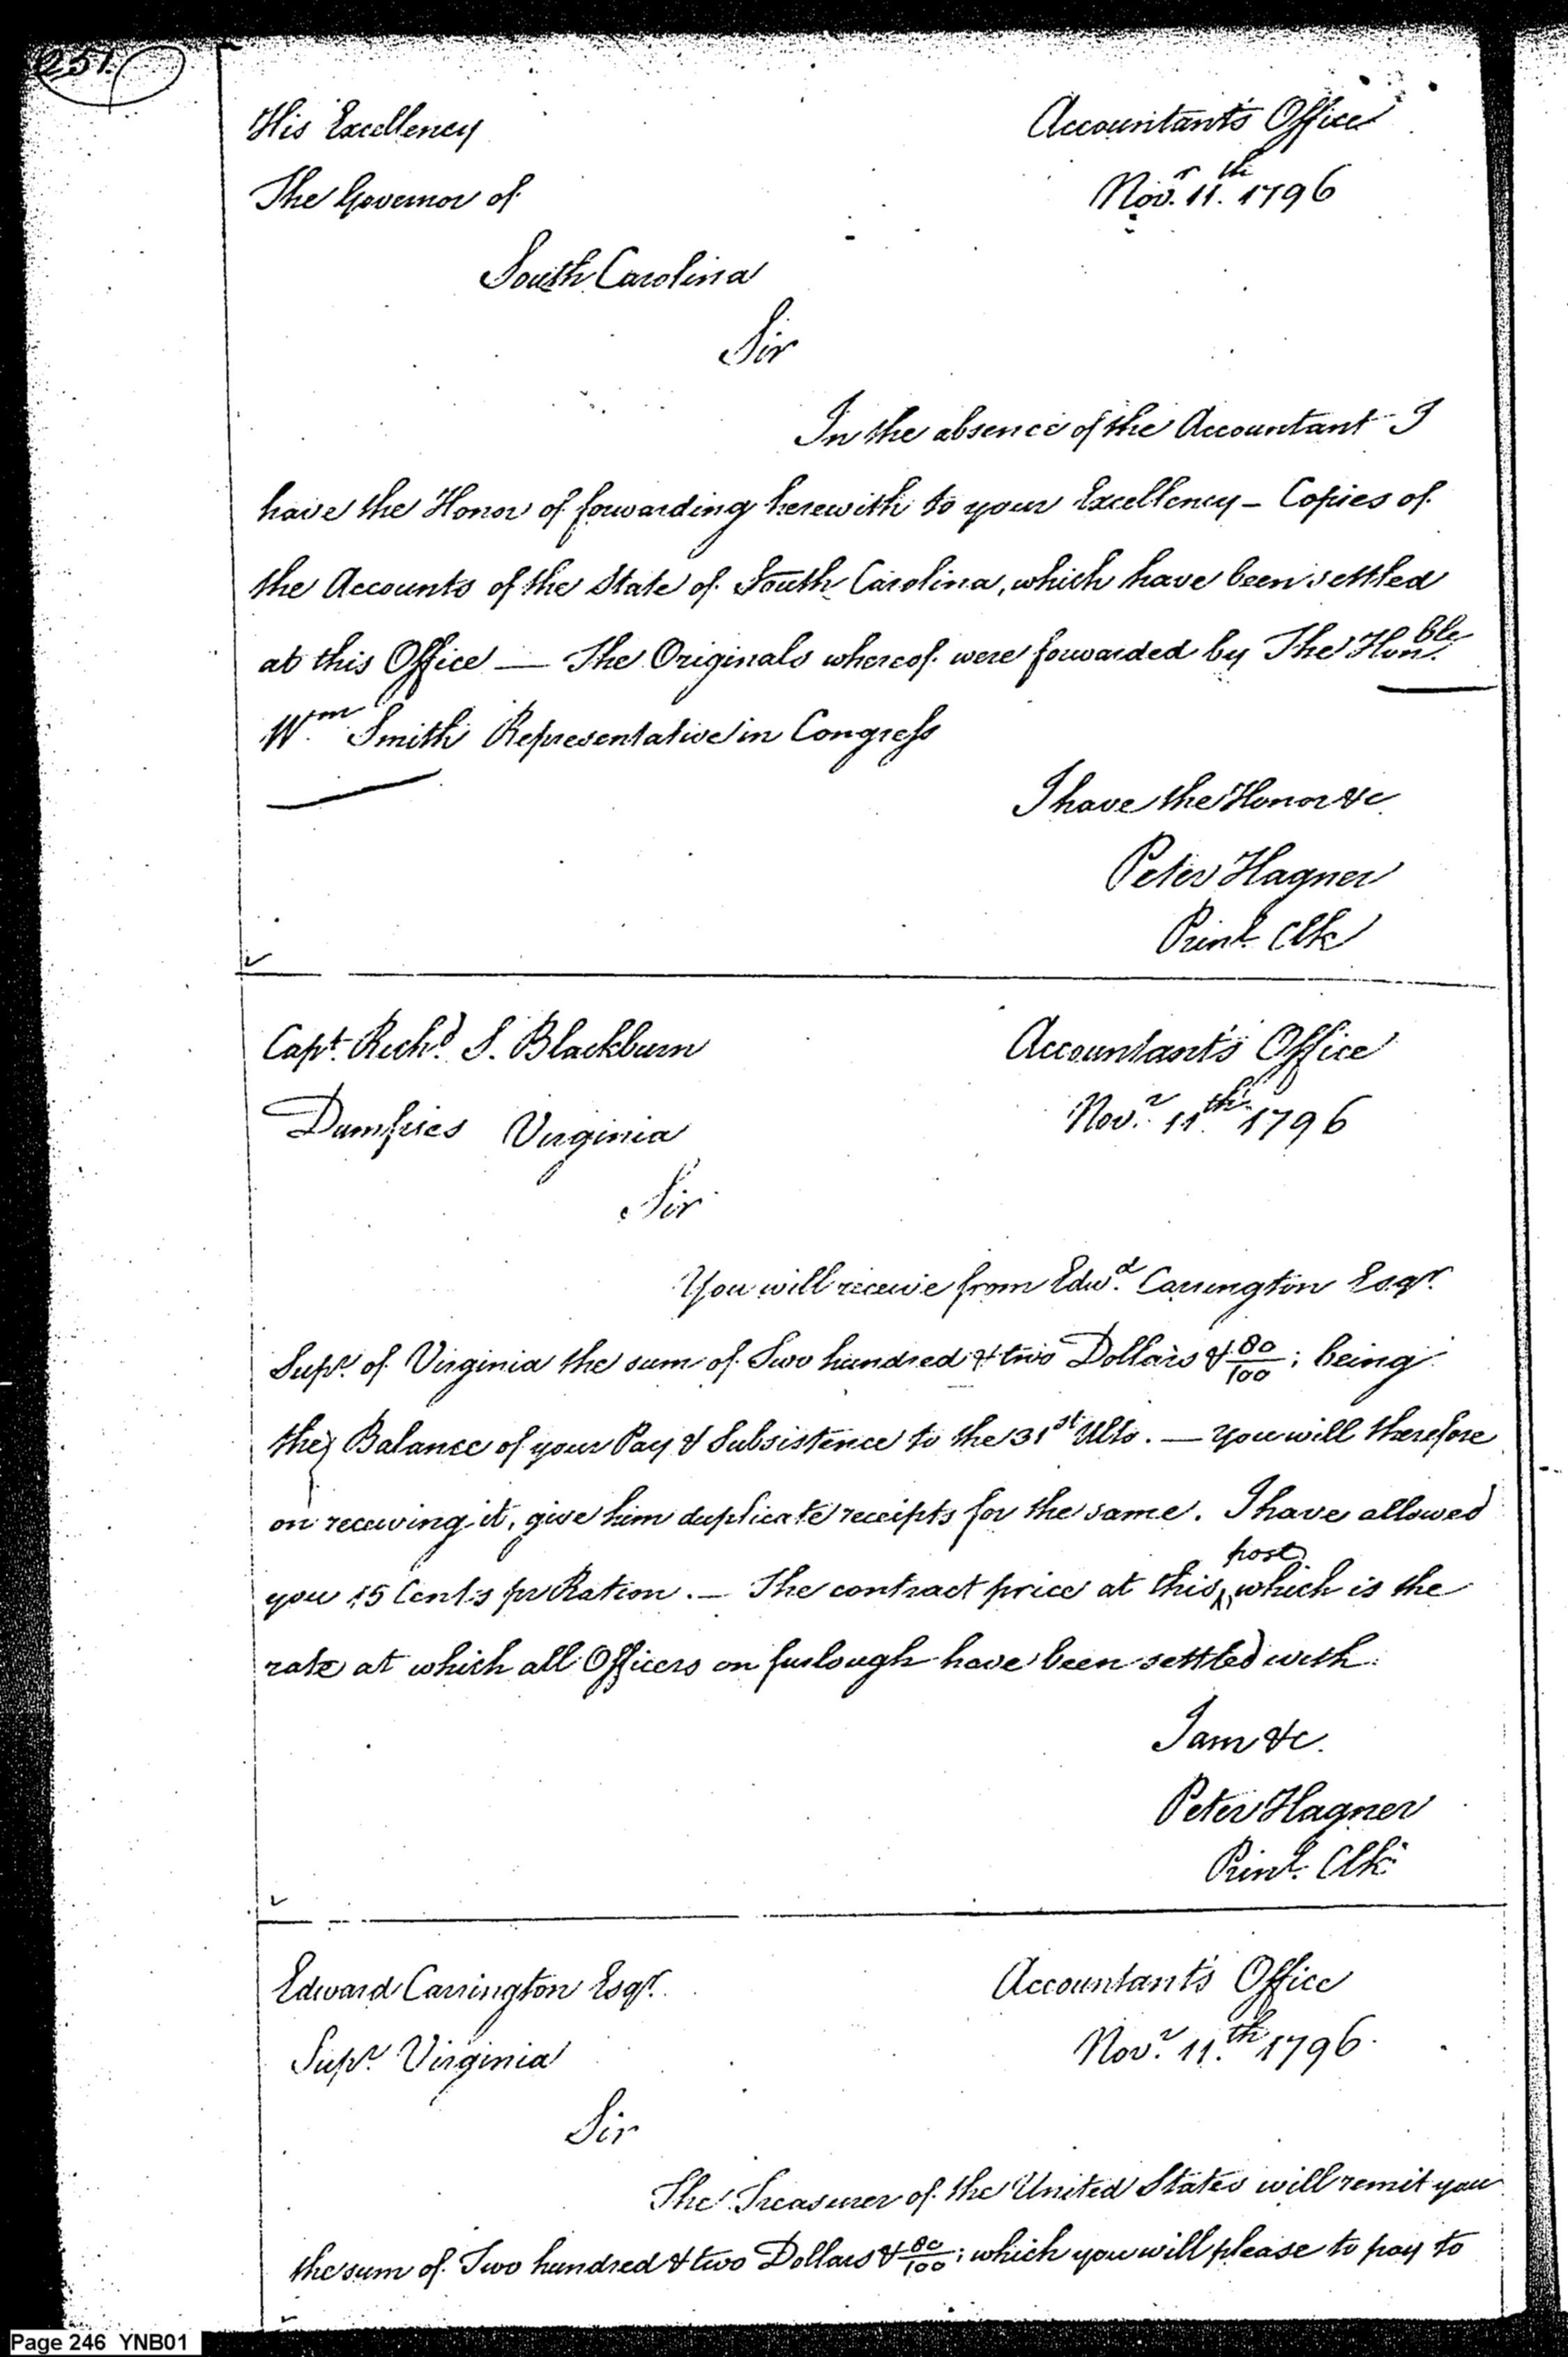 251.
His Excellency
Accountant's Office
The Governor of
Nov.r 11.th 1796
South Carolina
Sir
In the absence of the Accountant I
have the Honor of forwarding herewith to your Excellency - Copies of
the Accounts of the State of South Carolina, which have been settled
at this Office — The Originals whereof were forwarded by The Hon.ble
W.m Smith Representative in Congress
I have the Honor &c
Peter Hagner
Prinl. Clk
Capt. Rich.d S. Blackburn
Accountant's Office
Dumfries Virginia
Nov.r 11.th 1796
Sir
You will receive from Edw.d Carrington Esqr.
Supr. of Virginia the sum of Two hundred & two Dollars & 80/100; being
the Balance of your Pay & Subsistence to the 31st Ulto. — You will therefore
on receiving it, give him duplicate receipts for the same. I have allowed
you 15 Cents pr Ration. — The contract price at this post which is the
rate at which all Officers on furlough have been settled with.
I am &c.
Peter Hagner
Prinl. Clk.
Edward Carrington Esqr.
Accountant's Office
Supr. Virginia
Nov.r 11.th 1796.
Sir
The Treasurer of the United States will remit you
the sum of Two hundred & two Dollars & 80/100; which you will please to pay to
Page 246 YNB01